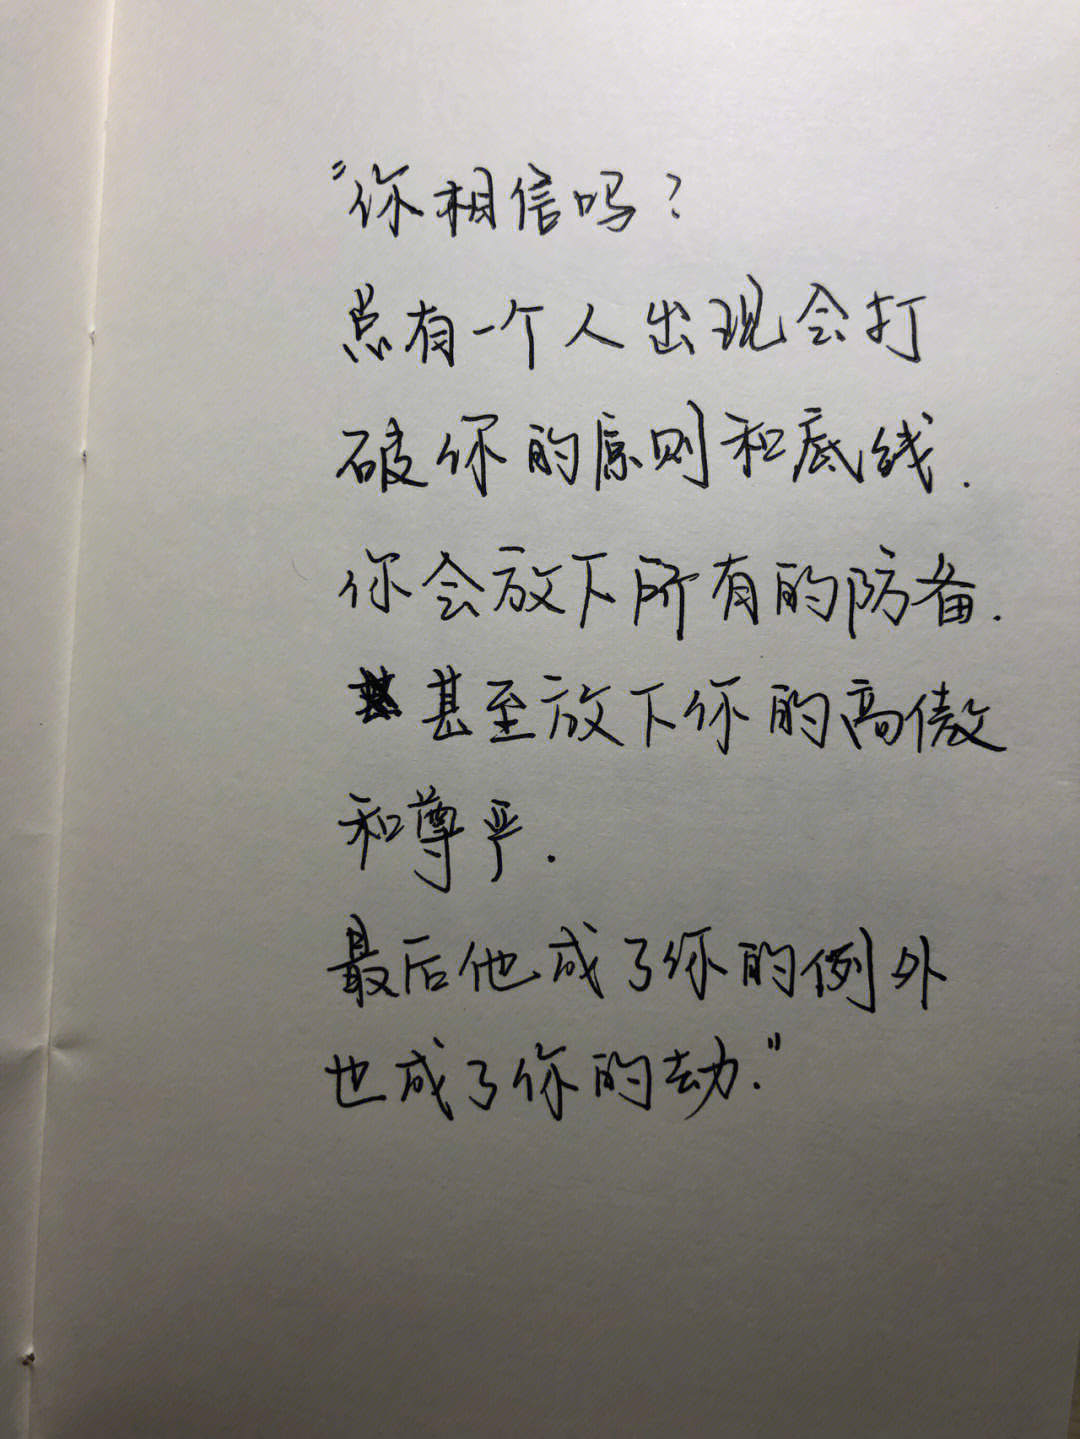 “你相信吗？
总有一个人出现会打
破你的原则和底线.
你会放下所有的防备.
甚至放下你的高傲
和尊严.
最后他成了你的例外
也成了你的劫.”